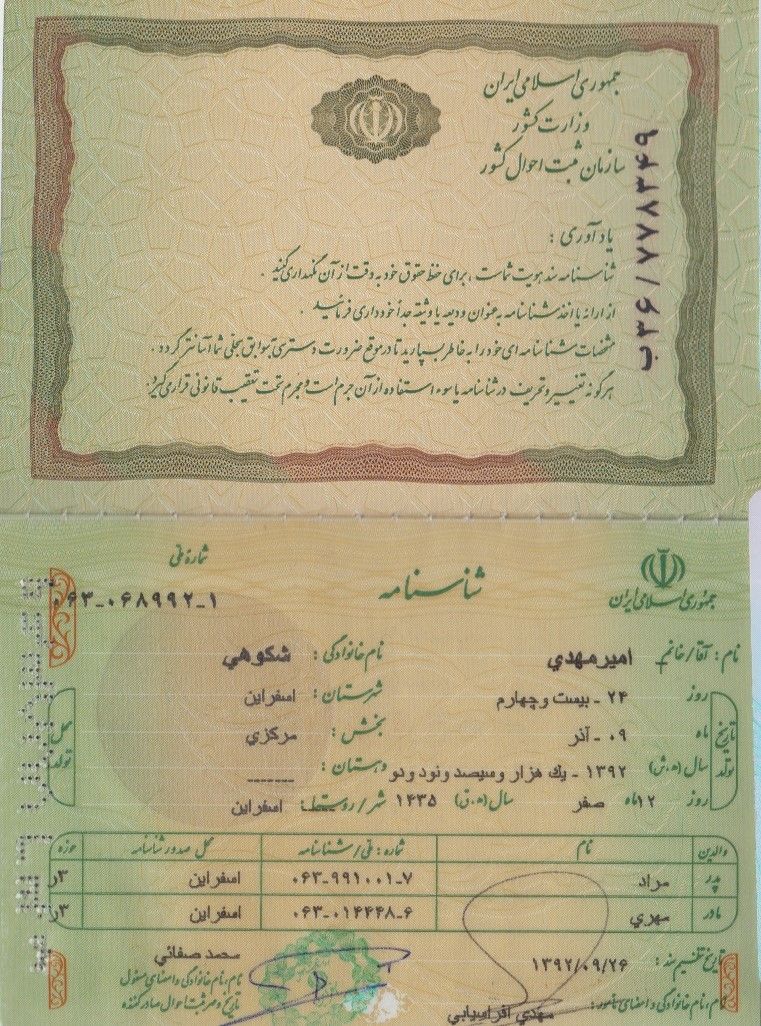 جمهوری اسلامی ایران
وزارت کشور
سازمان ثبت احوال کشور
ب۳۶/۷۷۸۳۴۹
یادآوری :
شناسنامه سند هویت شماست ، برای حفظ حقوق خود به دقت از آن نگهداری کنید .
از ارائه یا اخذ شناسنامه به عنوان ودیعه یا وثیقه جداً خودداری فرمائید .
مشخصات شناسنامه ای خود را به خاطر بسپارید تا در موقع ضرورت دسترسی به سوابق سجلی شما آسانتر گردد .
هرگونه تغییر و تحریف در شناسنامه یا سوء استفاده از آن جرم است و مجرم تحت تعقیب قانونی قرار می گیرد .
جمهوری اسلامی ایران
شناسنامه
شماره ملی
۰۶۳-۰۶۸۹۹۲-۱
نام : آقا/خانم امیرمهدي نام خانوادگی : شکوهي
تاریخ تولد
روز ۲۴ - بیست و چهارم
ماه ۰۹ - آذر
سال (ه.ش) ۱۳۹۲ - یك هزار و سیصد و نود و دو
روز ۱۲ ماه صفر سال (ه.ق) ۱۴۳۵
محل تولد
شهرستان : اسفراین
بخش : مرکزي
دهستان : -------
شهر/روستا : اسفراین
والدین نام شماره : ملی/شناسنامه محل صدور شناسنامه حوزه
پدر مراد ۰۶۳-۹۹۱۰۰۱-۷ اسفراین ۳ر
مادر مهري ۰۶۳-۰۱۴۴۴۸-۶ اسفراین ۳ر
تاریخ تنظیم سند : ۱۳۹۲/۰۹/۲۶
نام ، نام خانوادگی و امضای مامور : مهدي افراسیابي
محمد صفائي
نام ، نام خانوادگی و امضای مسئول
تاریخ و مهر ثبت احوال صادرکننده